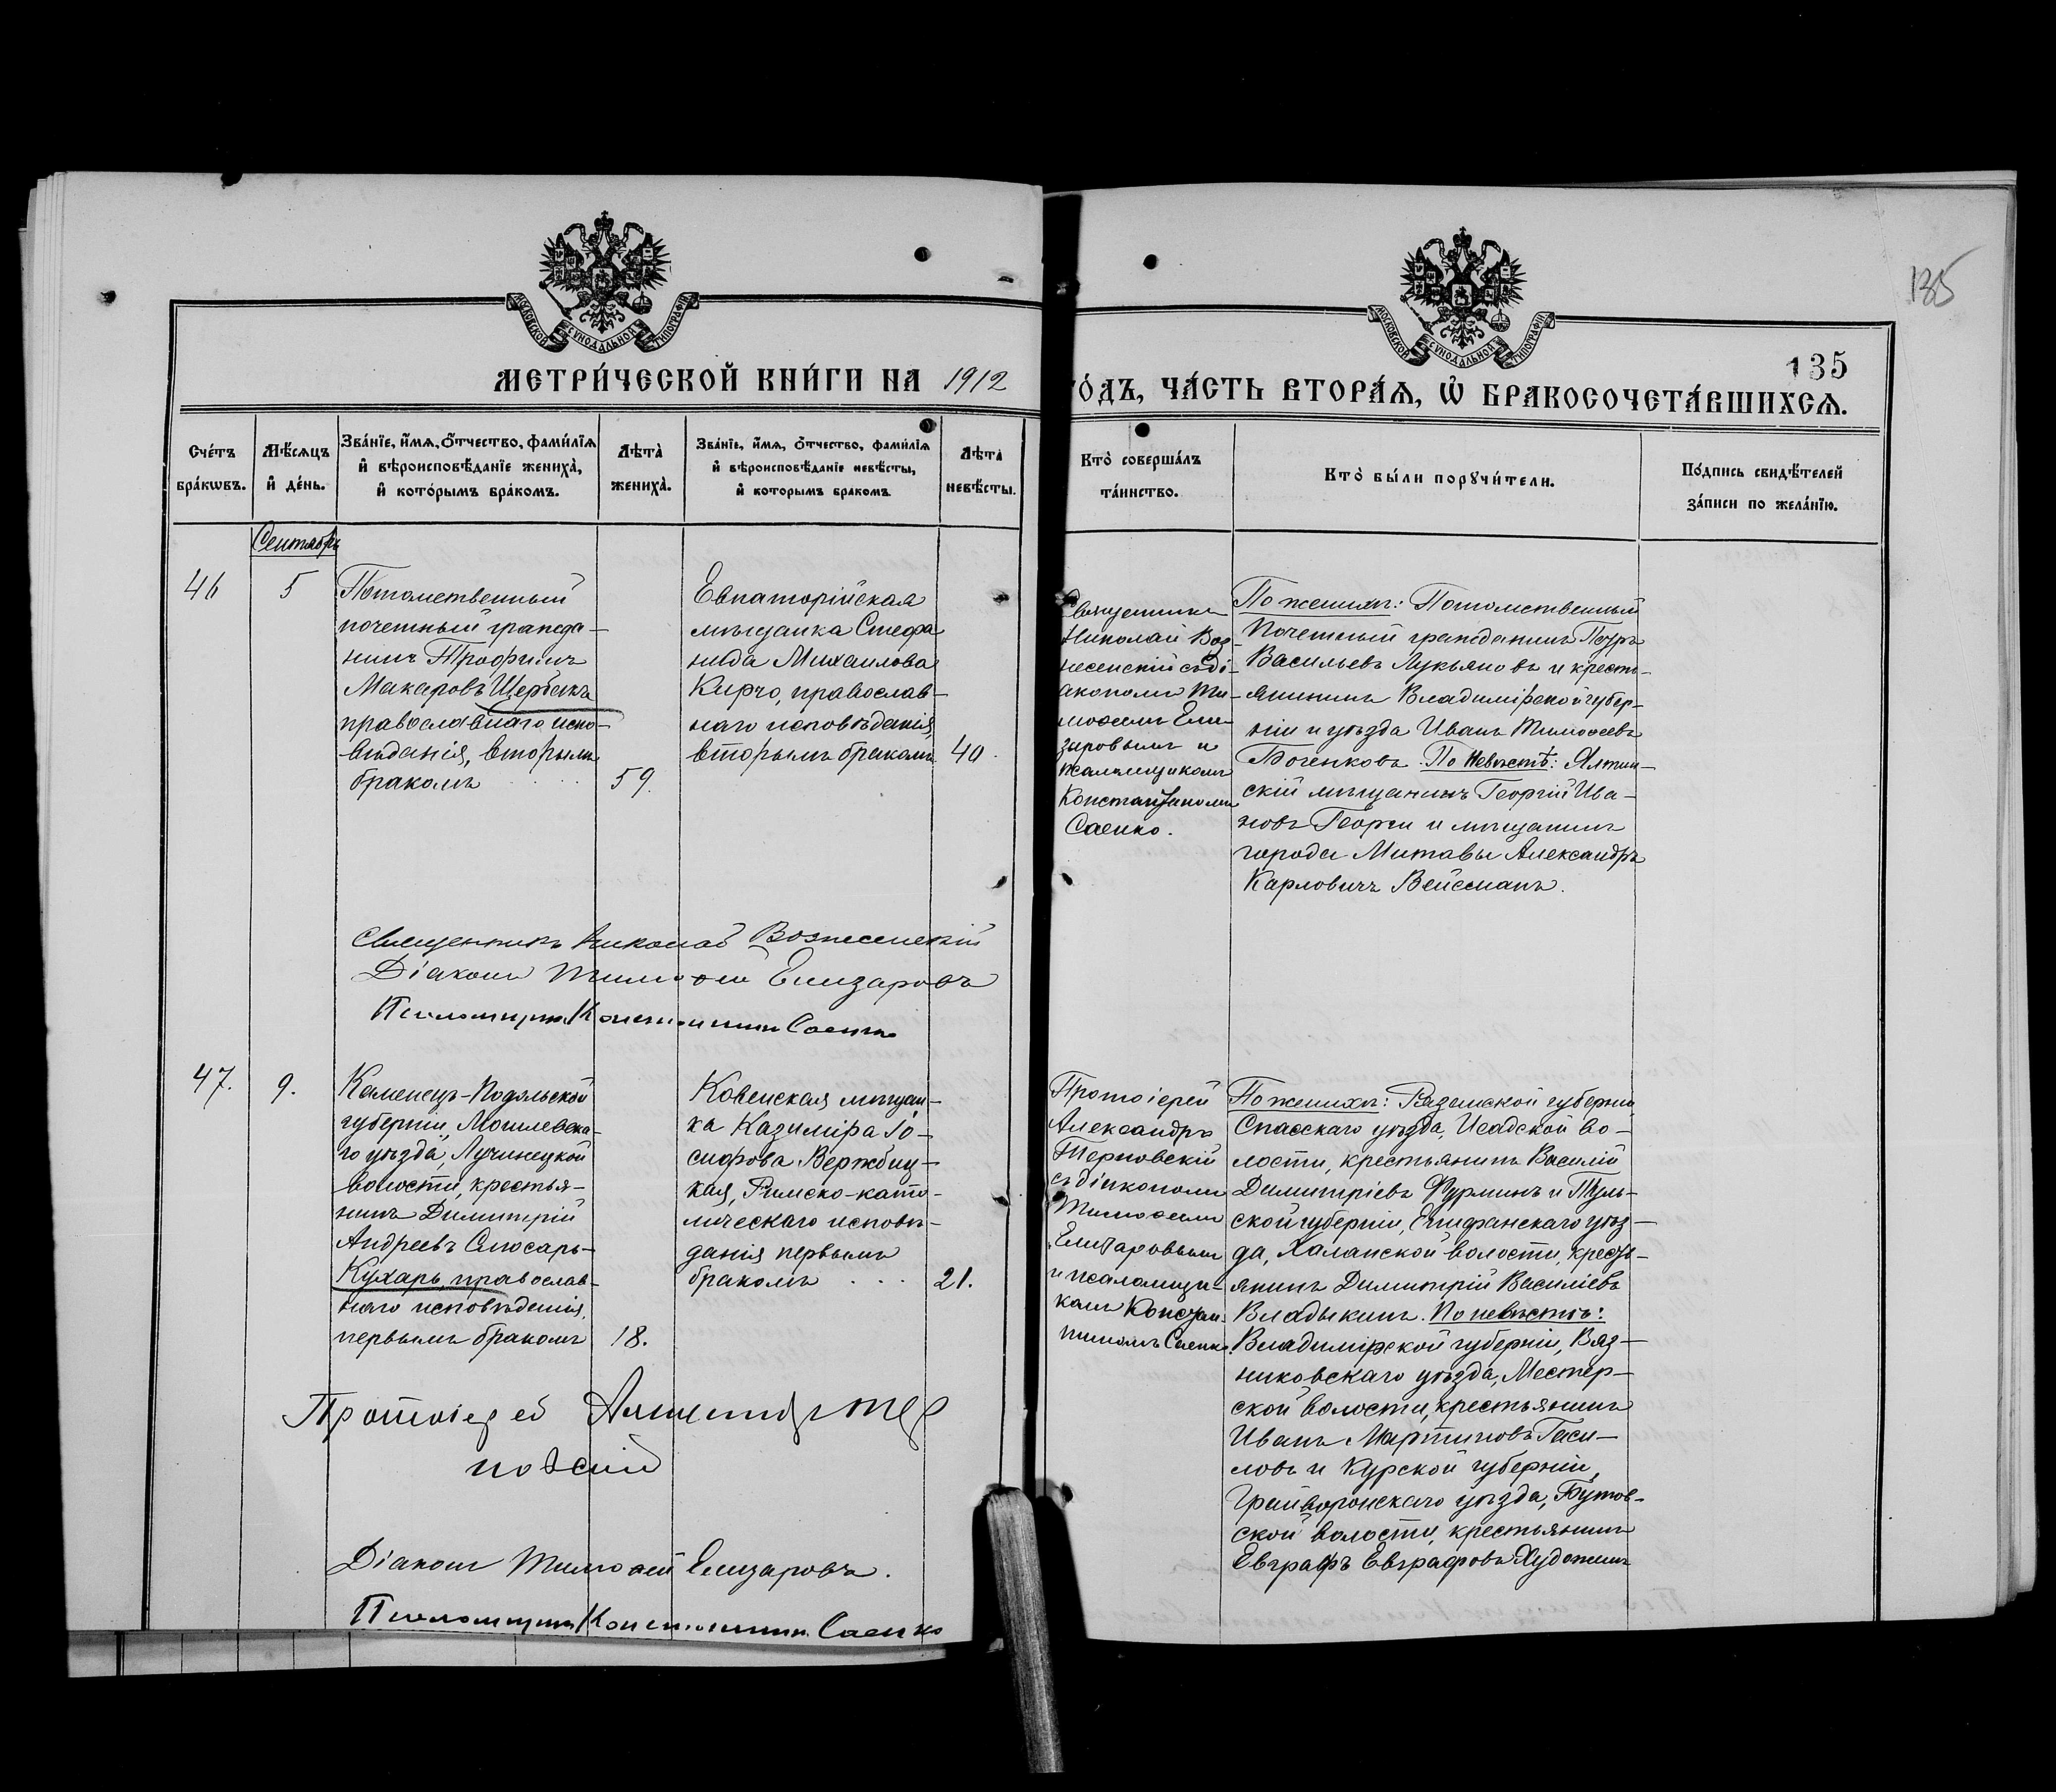 135
МОСКОВСКОЙ СУНОДАЛЬНОЙ ТИПОГРАФІИ
МОСКОВСКОЙ СУНОДАЛЬНОЙ ТИПОГРАФІИ
135
МЕТРИ́ЧЕСКОЙ КНИ́ГИ НА 1912
ГО́ДЪ, ЧА́СТЬ ВТОРА́Ѧ, Ѡ БРАКОСОЧЕТА́ВШИХСѦ.
Сче́тъ
бра́кѡвъ.
Мѣ́сѧцъ
и҆ де́нь.
Зва́нїе, и҆́мѧ, ѻ҆́тчество, фами́лїѧ
и҆ вѣроисповѣ́данїе жениха̀,
и҆ кото́рымъ бра́комъ.
Лѣта̀
жениха̀.
Зва́нїе, и҆́мѧ, ѻ҆́тчество, фами́лїѧ
и҆ вѣроисповѣ́данїе невѣ́сты,
и҆ которымъ бракомъ.
Лѣта̀
невѣ́сты.
Кто̀ соверша́лъ
та́инство.
Кто̀ бы́ли порꙋчи́тели.
По́дпись свидѣ́телей
за́писи по жела́нїю.
Сентябрь
46
5
Потомственный
почетный гражда-
нинъ Трофимъ
Макаровъ Щербакъ
православнаго испо-
вѣданія, вторымъ
бракомъ
59.
Евпаторійская
мѣщанка Стефа
нида Михаилова
Кирчо, православ-
наго исповѣданія,
вторымъ бракомъ.
40.
Священникъ
Николай Воз-
несенскій съ ді-
акономъ Ти-
моѳеемъ Ели-
заровымъ и
псаломщикомъ
Константиномъ
Саенко.
По женихѣ: Потомственный
Почетный гражданинъ Петръ
Васильевъ Лукьяновъ и кресть-
янинъ Владимірской губер-
ніи и уѣзда Иванъ Тимоѳеевъ
Боченковъ. По Невѣстѣ: Ялтин-
скій мѣщанинъ Георгій Ива-
новъ Георги и мѣщанинъ
города Митавы Александръ
Карловичъ Вейсманъ.
Священникъ Николай Вознесенскій
Діаконъ Тимоѳей Елизаровъ
Псаломщикъ Константинъ Саенко
47.
9.
Каменецъ-Подольской
губерніи, Могилевска-
го уѣзда, Лучинецкой
волости, крестья-
нинъ Димитрій
Андреевъ Слюсарь-
Кухарь, православ-
наго исповѣданія,
первымъ бракомъ
18.
Ковенская мѣщан-
ка Казиміра Іо-
сифова Вержбиц-
кая, Римско-като-
лическаго исповѣ-
данія первымъ
бракомъ
21.
Протоіерей
Александръ
Терновскій
съ діакономъ
Тимоѳеемъ
Елизаровымъ
и псаломщи-
комъ Констан-
тиномъ Саенко.
По женихѣ: Рязанской губерніи
Спасскаго уѣзда, Исадской во-
лости, крестьянинъ Василій
Димитріевъ Фурминъ и Туль-
ской губерніи, Епифанскаго уѣз-
да, Халанской волости, кресть-
янинъ Димитрій Василіевъ
Владыкинъ. По невѣстѣ:
Владимірской губерніи, Вяз-
никовскаго уѣзда, Мстер-
ской волости, крестьянинъ
Иванъ Мартиновъ Гаси-
ловъ и Курской губерніи,
Грайворонскаго уѣзда, Бутов-
ской волости, крестьянинъ
Евграфъ Евграфовъ Художинъ
Протоіерей Александръ Тер
новскій
Діаконъ Тимоѳей Елизаровъ.
Псаломщикъ Константинъ Саенко